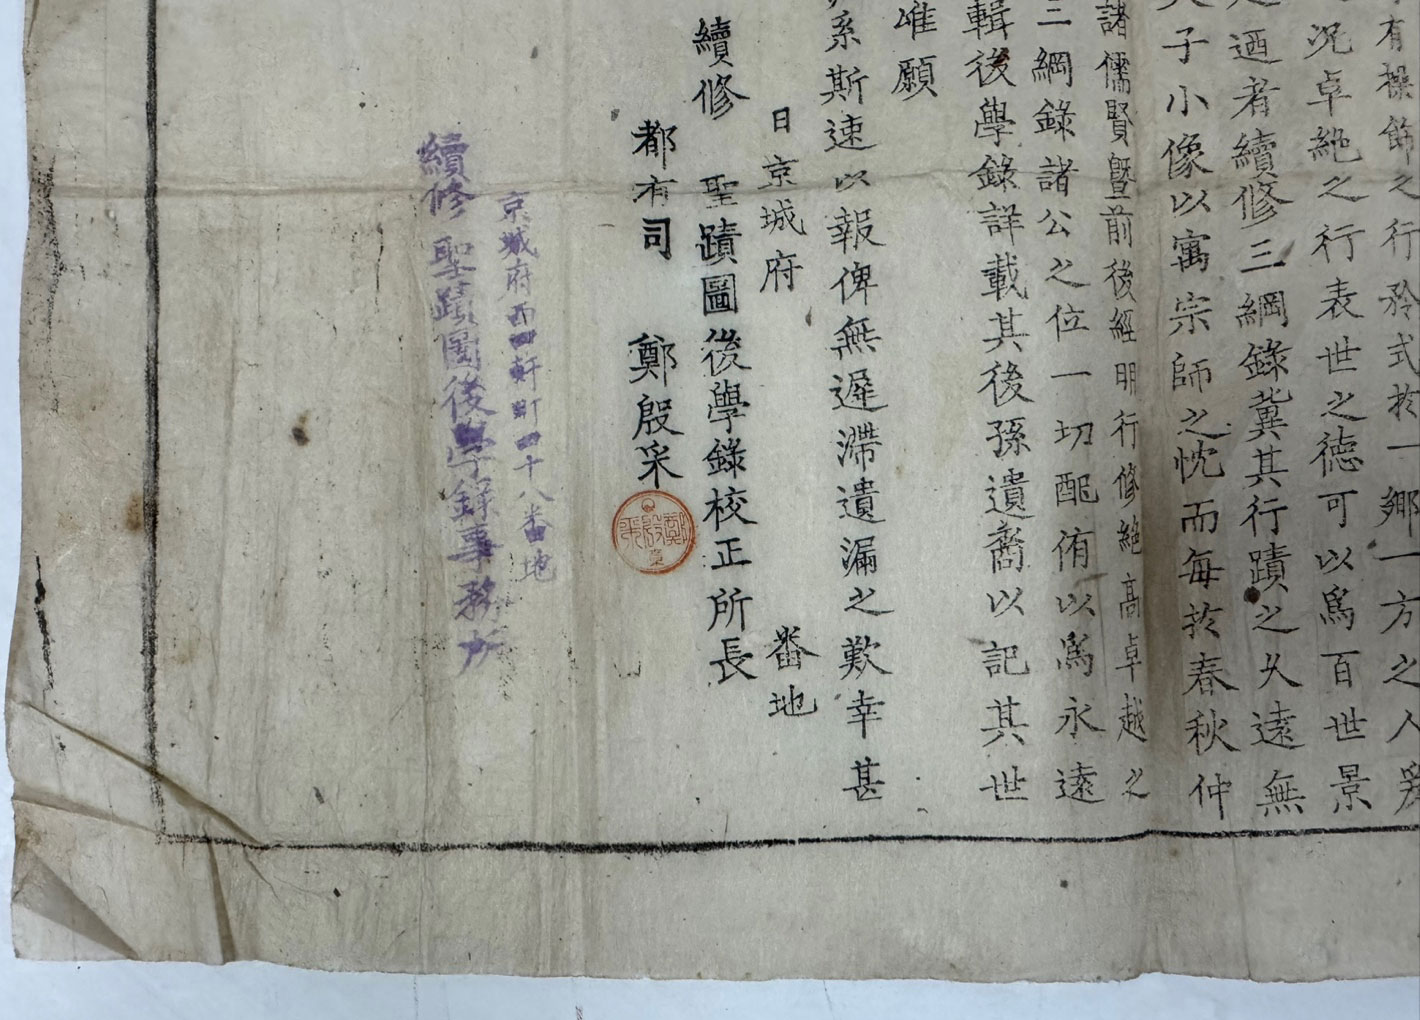 有操飾之行矜式於一鄕一方之人爰
況卓絶之行表世之德可以爲百世景
迺者續修三綱錄冀其行蹟之久遠無
子小像以寓宗師之忱而每於春秋仲
諸儒賢曁前後經明行修絶高卓越之
三綱錄諸公之位一切配侑以爲永遠
輯後學錄詳載其後孫遺裔以記其世
惟願
系斯速以報俾無遲滯遺漏之歎幸甚
日京城府 番地
續修 聖蹟圖後學錄校正所長
都有司 鄭殷采
京城府西四軒町四十八番地
續修 聖蹟圖後學錄事務所